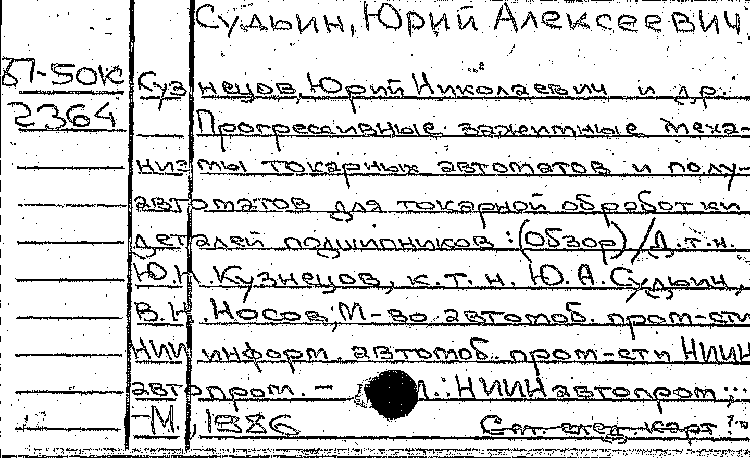 Судьин, Юрий Алексеевич.
81-50к Кузнецов, Юрий Николаевич и др.
2364 Прогрессивные зажимные меха-
низмы токарных автоматов и полу-
автоматов для токарной обработки
деталей подшипников : (Обзор) / Д.т.н.
Ю.Н. Кузнецов, к.т.н. Ю.А. Судьин,
В.Н. Носов; М-во автомоб. пром-сти
НИИ информ. автомоб. пром-сти НИИН
автопром. – М.: НИИН автопром ;
– М., 1986 См. след. карт.